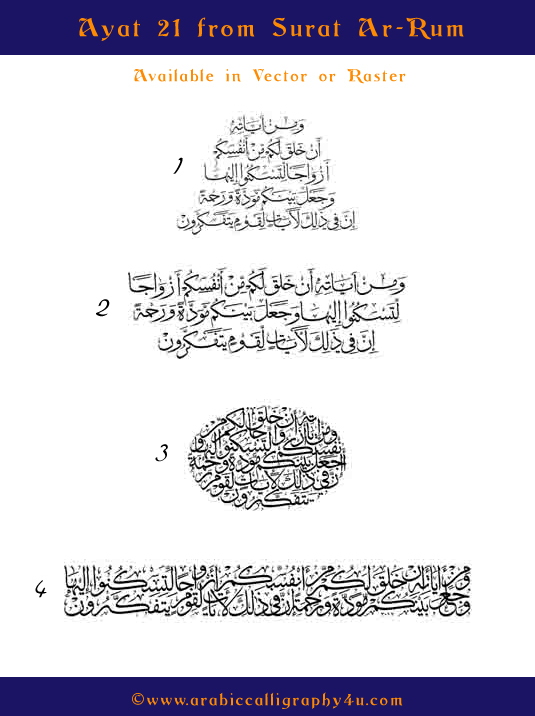 Ayat 21 from Surat Ar-Rum
Available in Vector or Raster
1
وَمِنْ آيَاتِهِ
أَنْ خَلَقَ لَكُم مِّنْ أَنفُسِكُمْ
أَزْوَاجًا لِّتَسْكُنُوا إِلَيْهَا
وَجَعَلَ بَيْنَكُم مَّوَدَّةً وَرَحْمَةً
إِنَّ فِي ذَٰلِكَ لَآيَاتٍ لِّقَوْمٍ يَتَفَكَّرُونَ
2
وَمِنْ آيَاتِهِ أَنْ خَلَقَ لَكُم مِّنْ أَنفُسِكُمْ أَزْوَاجًا
لِّتَسْكُنُوا إِلَيْهَا وَجَعَلَ بَيْنَكُم مَّوَدَّةً وَرَحْمَةً
إِنَّ فِي ذَٰلِكَ لَآيَاتٍ لِّقَوْمٍ يَتَفَكَّرُونَ
3
ومن آياته أن خلق لكم من
أنفسكم أزواجا لتسكنوا إليها و
جعل بينكم مودة ورحمة
إن في ذلك لآيات لقوم
يتفكرون
4
وَمِنْ آيَاتِهِ أَنْ خَلَقَ لَكُم مِّنْ أَنفُسِكُمْ أَزْوَاجًا لِّتَسْكُنُوا إِلَيْهَا
وَجَعَلَ بَيْنَكُم مَّوَدَّةً وَرَحْمَةً إِنَّ فِي ذَٰلِكَ لَآيَاتٍ لِّقَوْمٍ يَتَفَكَّرُونَ
©www.arabiccalligraphy4u.com